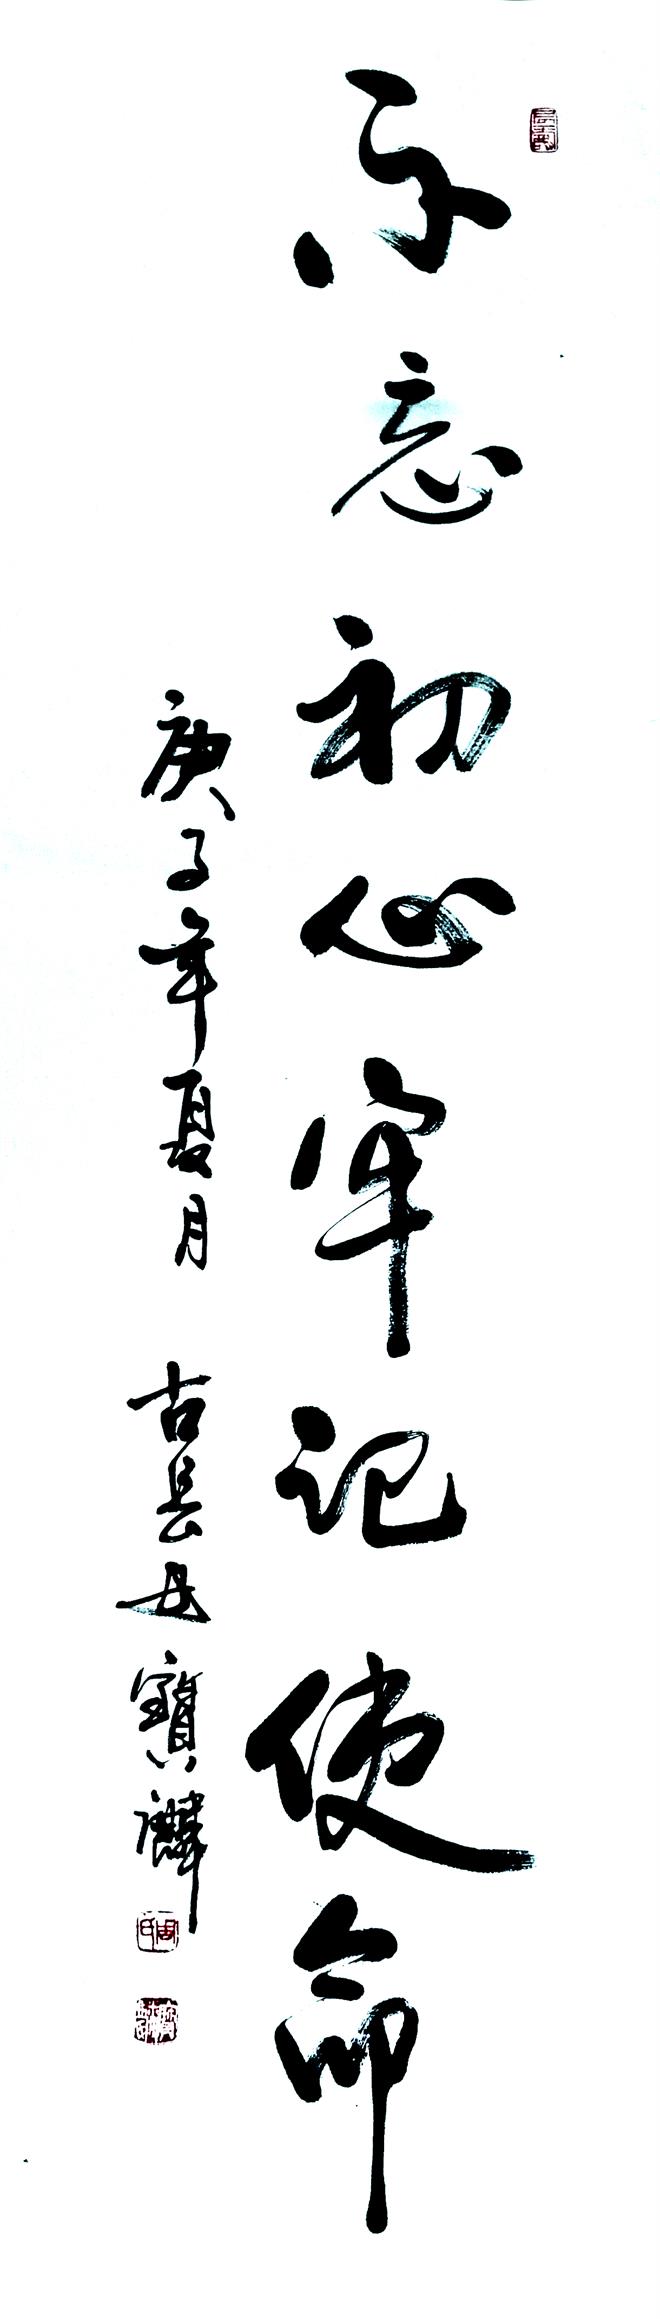 不忘初心牢记使命
庚子年夏月 古 寶麟